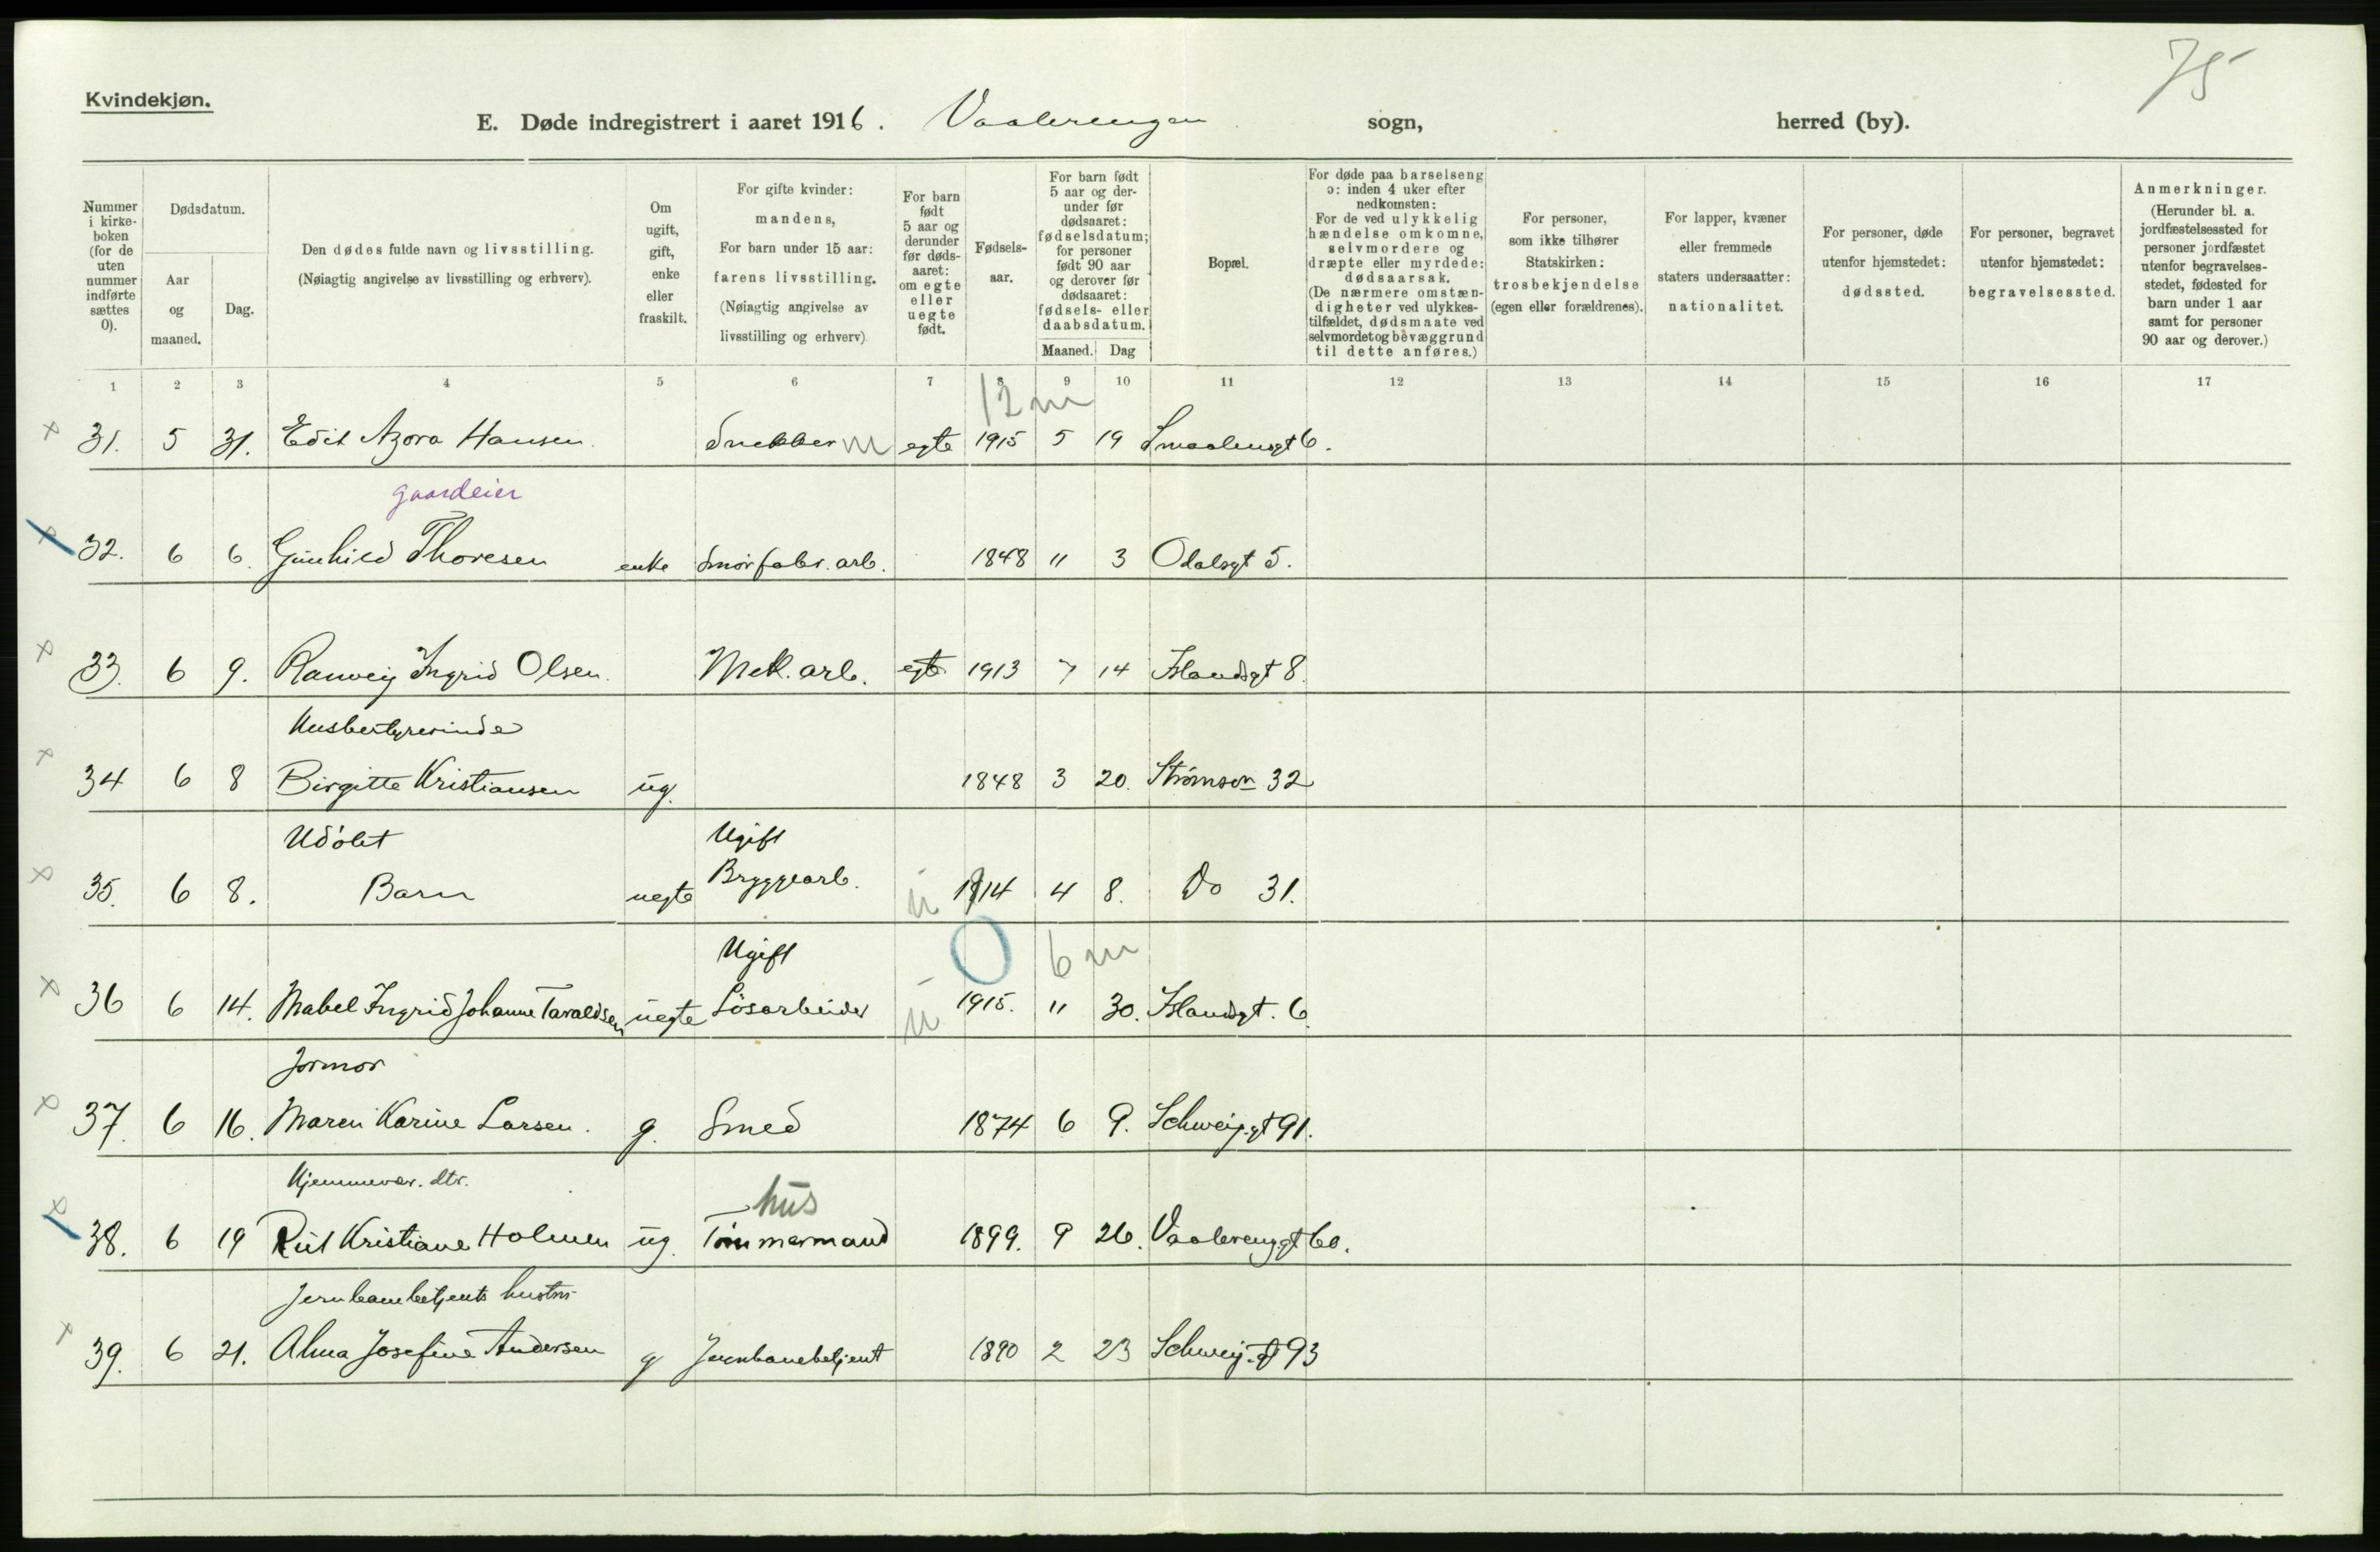 75
Kvindekjøn.
E. Døde indregistrert i aaret 1916. Vaalerengen sogn, herred (by).
Nummer i kirke-boken (for de uten nummer indførte sættes 0).
Dødsdatum.
Aar og maaned.
Dag.
Den dødes fulde navn og livsstilling.
(Nøiagtig angivelse av livsstilling og erhverv).
Om ugift, gift, enke eller fraskilt.
For gifte kvinder:
mandens,
For barn under 15 aar:
farens livsstilling.
(Nøiagtig angivelse av
livsstilling og erhverv)
For barn født 5 aar og derunder før døds-aaret: om egte eller uegte født.
Fødsels-aar.
For barn født 5 aar og der-under før dødsaaret: fødselsdatum; for personer født 90 aar og derover før dødsaaret: fødsels- eller daabsdatum.
Maaned. Dag
Bopæl.
For døde paa barselseng ɔ: inden 4 uker efter nedkomsten: For de ved ulykkelig hændelse omkomne, selvmordere og dræpte eller myrdede: dødsaarsak. (De nærmere omstæn-digheter ved ulykkes-tilfældet, dødsmaate ved selvmordet og bevæggrund til dette anføres.)
For personer, som ikke tilhører Statskirken: trosbekjendelse (egen eller forældrenes).
For lapper, kvæner eller fremmede staters undersaatter: nationalitet.
For personer, døde utenfor hjemstedet: dødssted.
For personer, begravet utenfor hjemstedet: begravelsessted.
Anmerkninger.
(Herunder bl. a. jordfæstelsessted for personer jordfæstet utenfor begravelses-stedet, fødested for barn under 1 aar samt for personer 90 aar og derover.)
1 2 3 4 5 6 7 8 9 10 11 12 13 14 15 16 17
12 m
31. 5 31. Edit Azora Hansen Snekker m egte 1915 5 19 Smaalensgt 6.
gaardeier
32. 6 6. Gunhild Thoresen enke Smörfabr. arb. 1848 11 3 Odalsgt 5.
33. 6 9. Ranveig Ingrid Olsen. Mek. arb. egte 1913 7 14 Islandsgt 8.
Husbestyrerinde
34 6 8 Birgitte Kristiansen ug. 1848 3 20. Strömsvn 32
Udöbt Ugift
35. 6 8. Barn uegte Bryggearb. u 1914 4 8. Do 31.
Ugift 0 6 m
36 6 14. Mabel Ingrid Johanne Taraldsen uegte Lösarbeider u 1915. 11 30. Islandsgt. 6.
Jormor
37. 6 16. Maren Karine Larsen. g. Smed 1874 6 9. Schweig.gt 91.
Hjemmevær. dtr. hus
38. 6 19 Rut Kristiane Holmen ug. Tömmermand 1899. 9 26. Vaalereng.gt 60.
Jernbanebetjents hustru
39. 6 21. Alma Josefine Andersen g Jernbanebetjent 1890 2 23 Schweig.gt 93